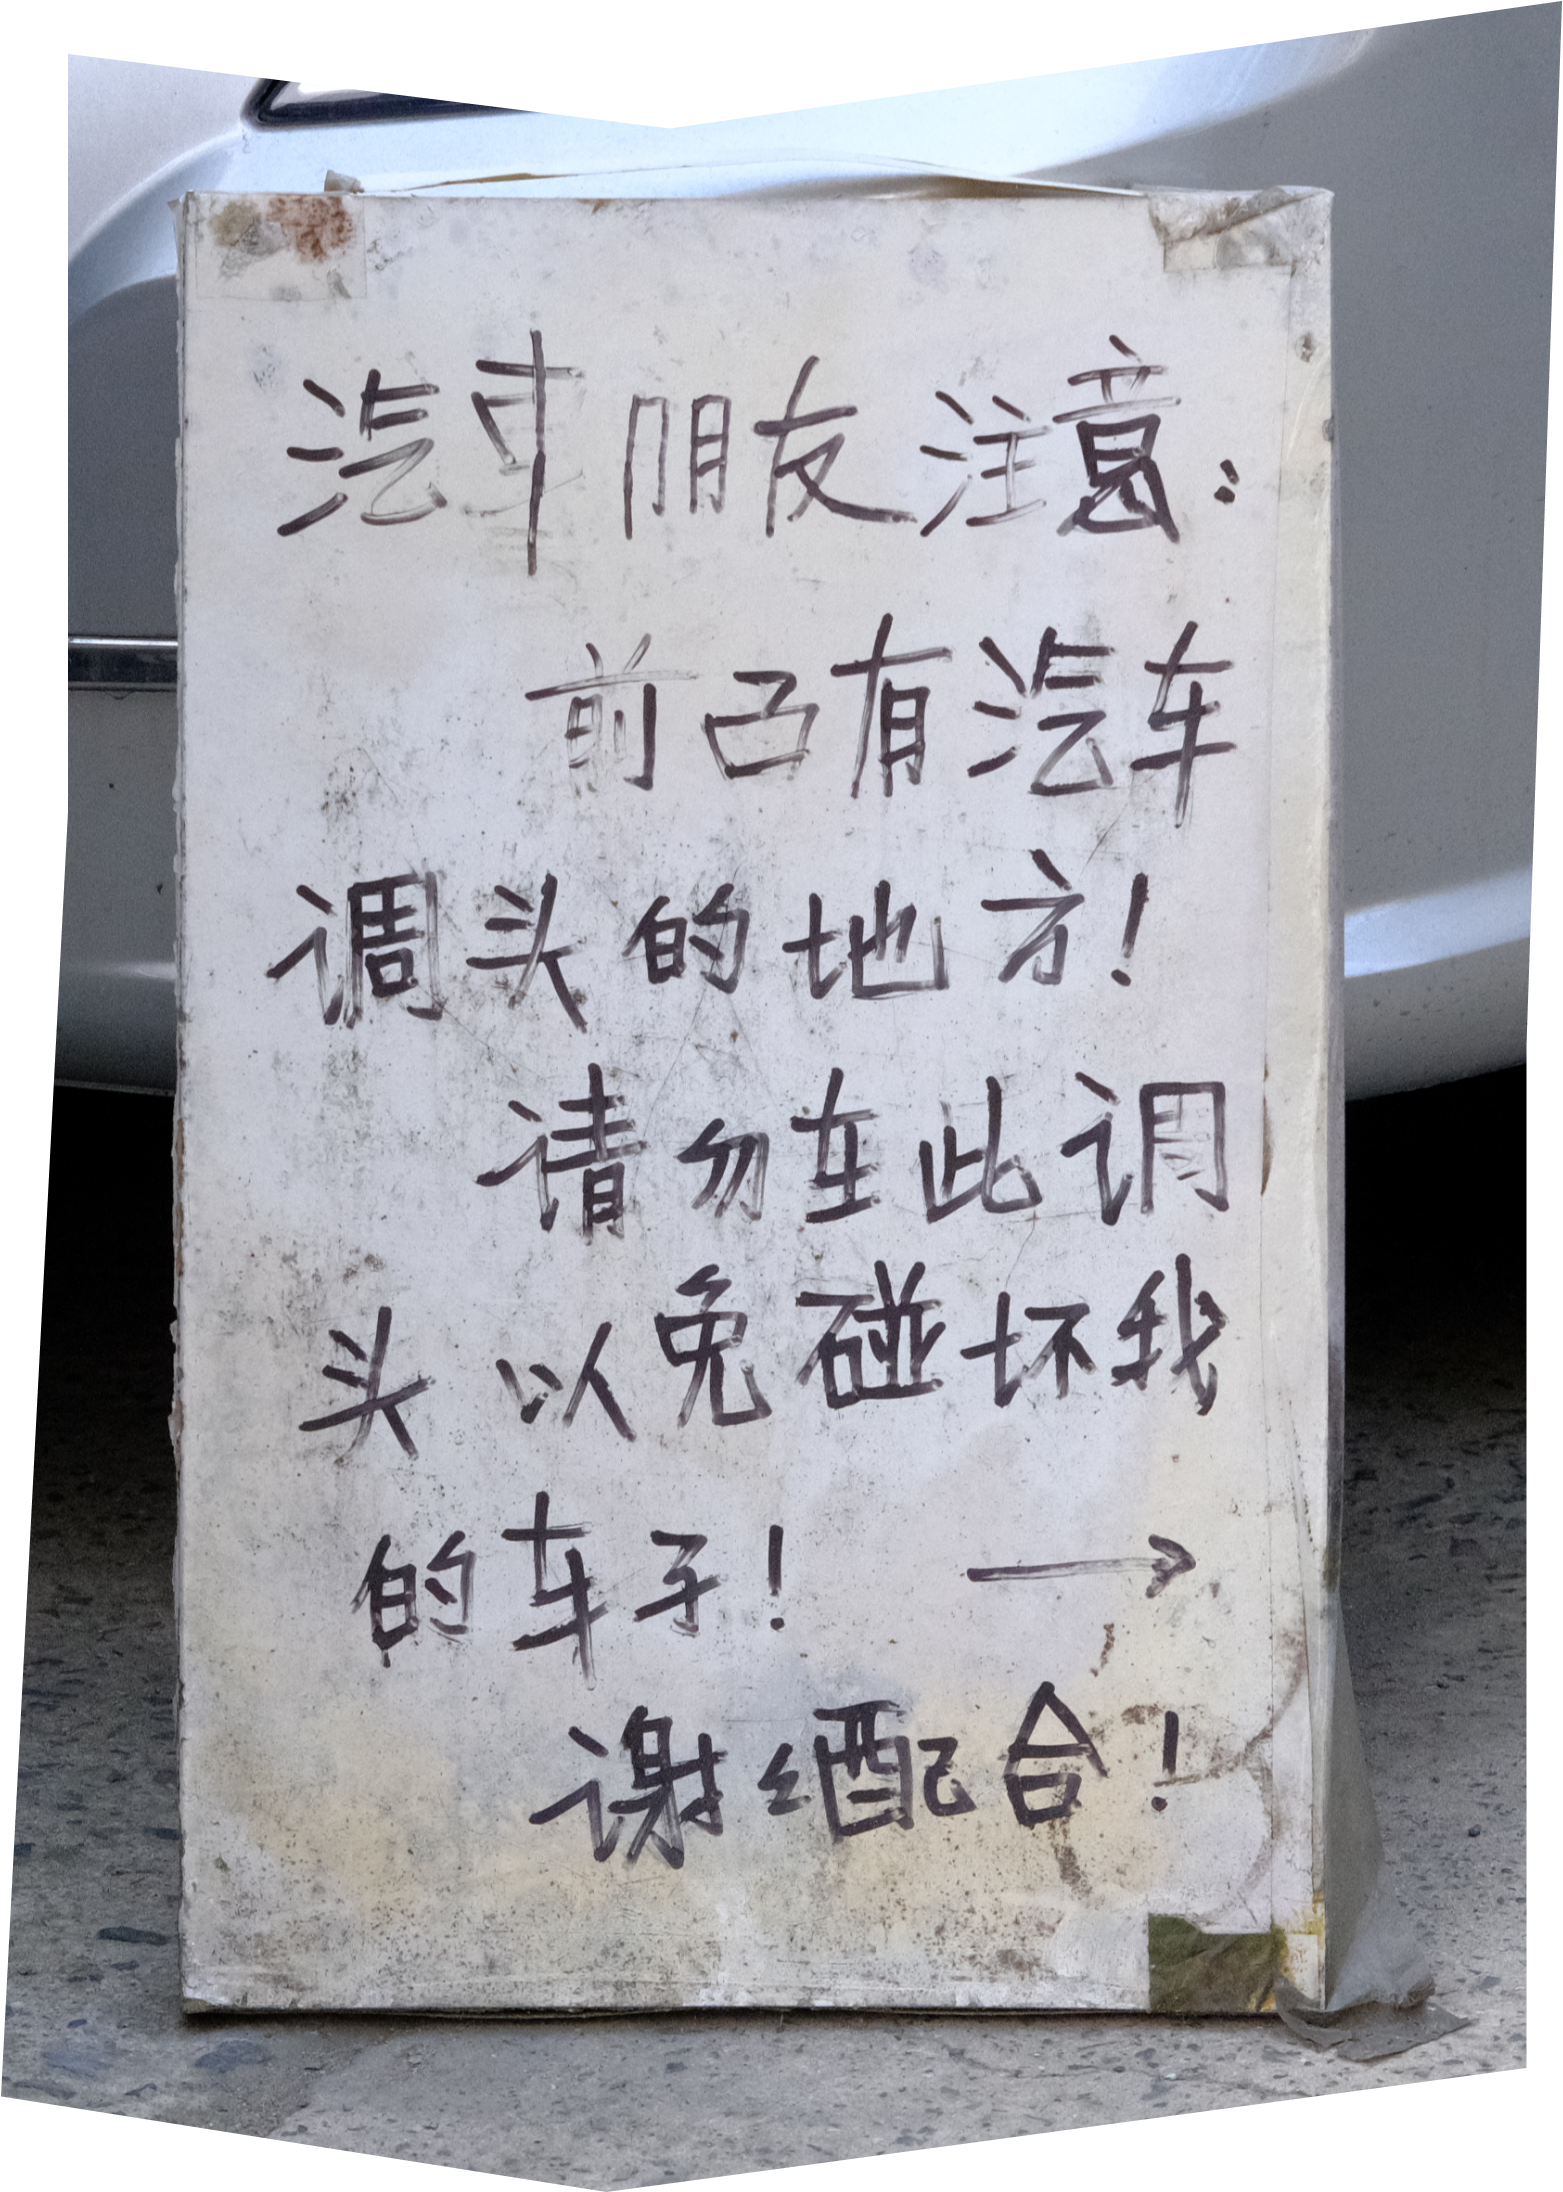 汽车朋友注意：
前面有汽车
调头的地方！
请勿在此调
头以免碰坏我
的车子！ →
谢谢配合！